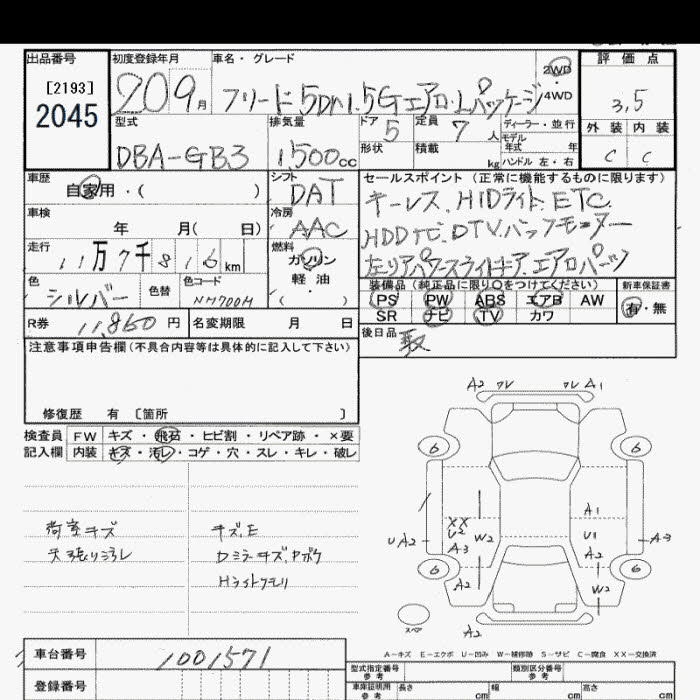 出品番号
[2193]
2045
初度登録年月
20 9月
車名・グレード
フリード 5Dハ1.5Gエアロ・Lパッケージ
2WD
・
4WD
評価点
3,5
外装 内装
C C
型式
DBA-GB3
排気量
1500cc
ドア 5
形状
定員 7人
積載 kg
ディーラー・並行
モデル
年式 年
ハンドル 左・右
車歴
自家用・( )
シフト
DAT
セールスポイント (正常に機能するものに限ります)
キーレス、HIDライト、ETC
HDDナビ、DTV、バックモニター
左リアパワースライドドア、エアロパーツ
車検
年 月( 日)
冷房
AAC
走行
11万7千816km
燃料
ガソリン
軽油
( )
色
シルバー
色替
色コード
NH700M
装備品 (純正品に限り○をつけてください)
PS PW ABS エアB AW
SR ナビ TV カワ
新車保証書
有・無
R券 11,860円
名変期限 月 日
後日品 取
注意事項申告欄(不具合内容等は具体的に記入して下さい)
修復歴 有 〔箇所 〕
検査員
記入欄
FW キズ・飛石・ヒビ割・リペア跡・×要
内装 キズ・汚レ・コゲ・穴・スレ・キレ・破レ
荷室キズ
天張リヨゴレ
キズ、E
Dミラーキズ、Pボケ
Hライトクモリ
A2 ワレ ワレ A1
6 6
A1
XX
U2
A3
W2
U A2
U1
A2
A3
6 6
A2
W2
スペア
A2
A-キズ E-エクボ U-凹み W-補修跡 S-サビ C-腐食 XX-交換済
車台番号 1001571
登録番号
型式指定番号
参考
類別区分番号
参考
車庫証明用
参考
長さ cm
幅 cm
高さ cm